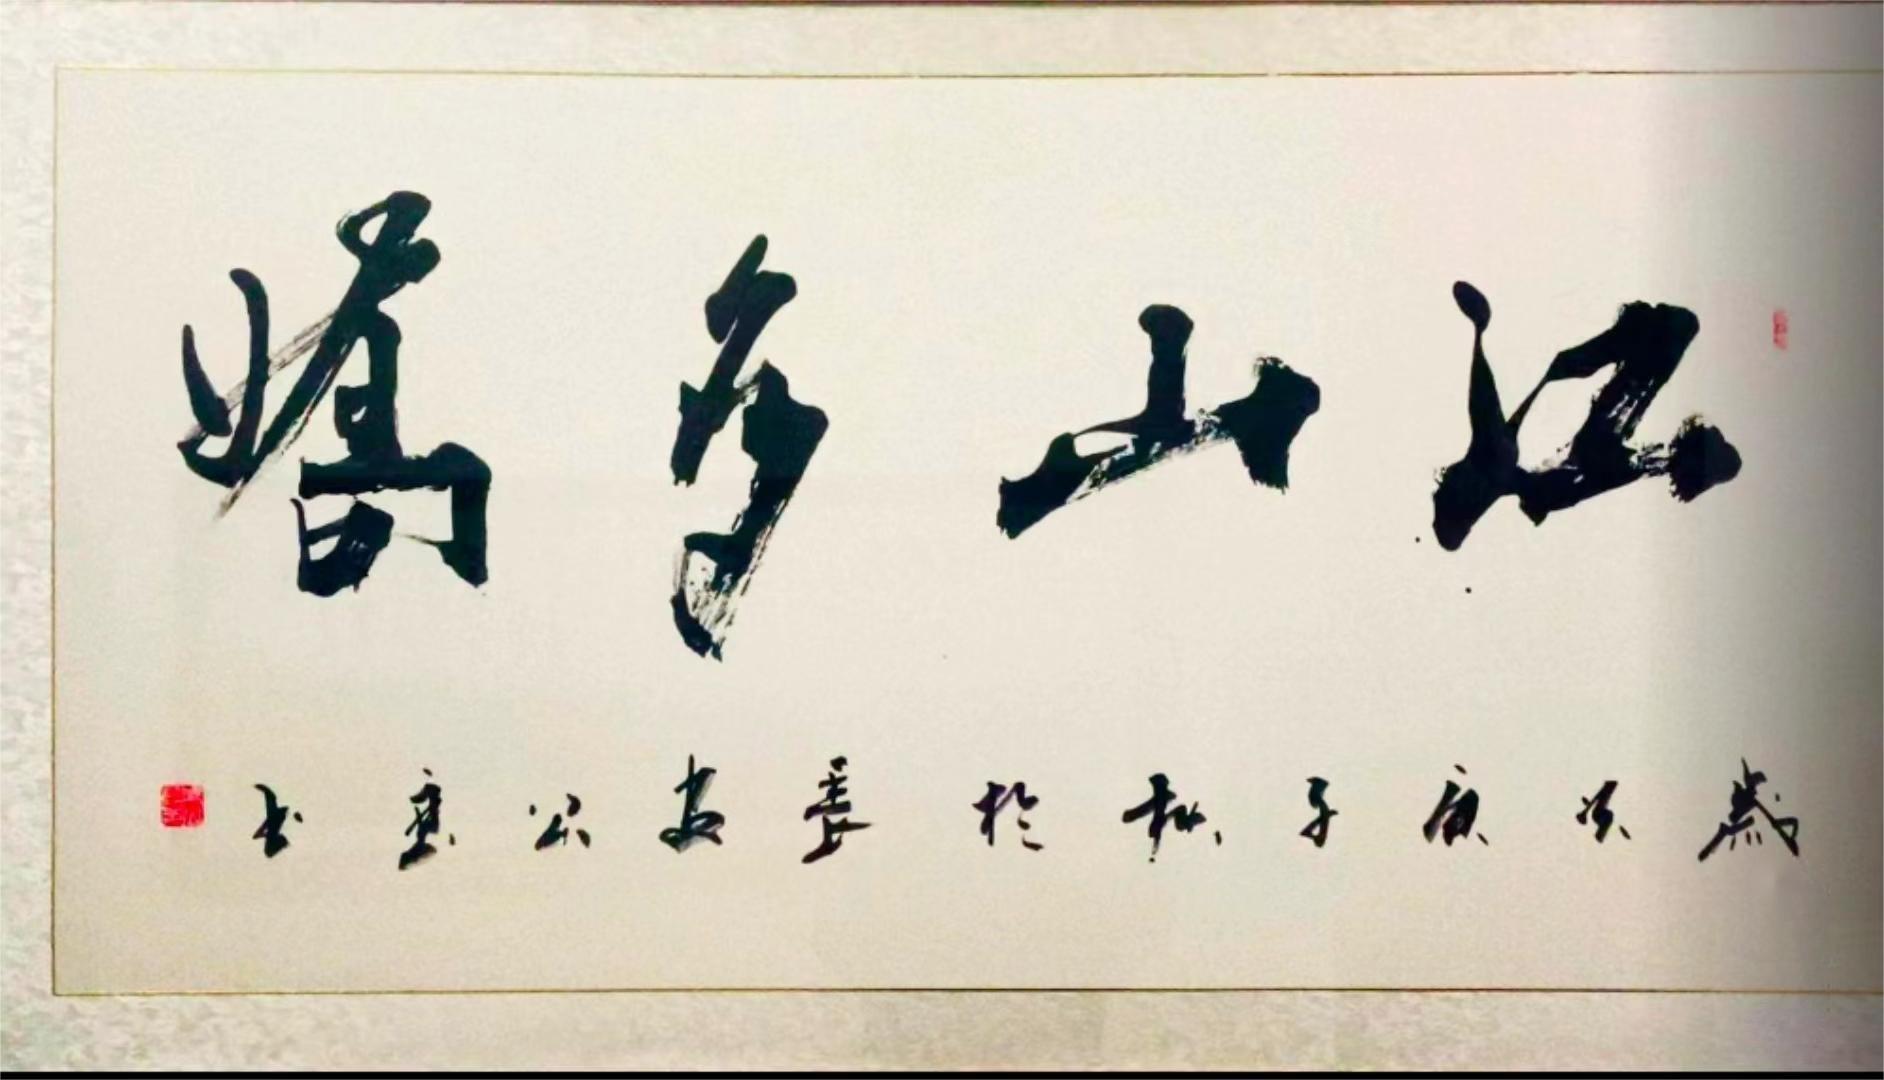 江山多嬌
歲次庚子秋於長安公寓书